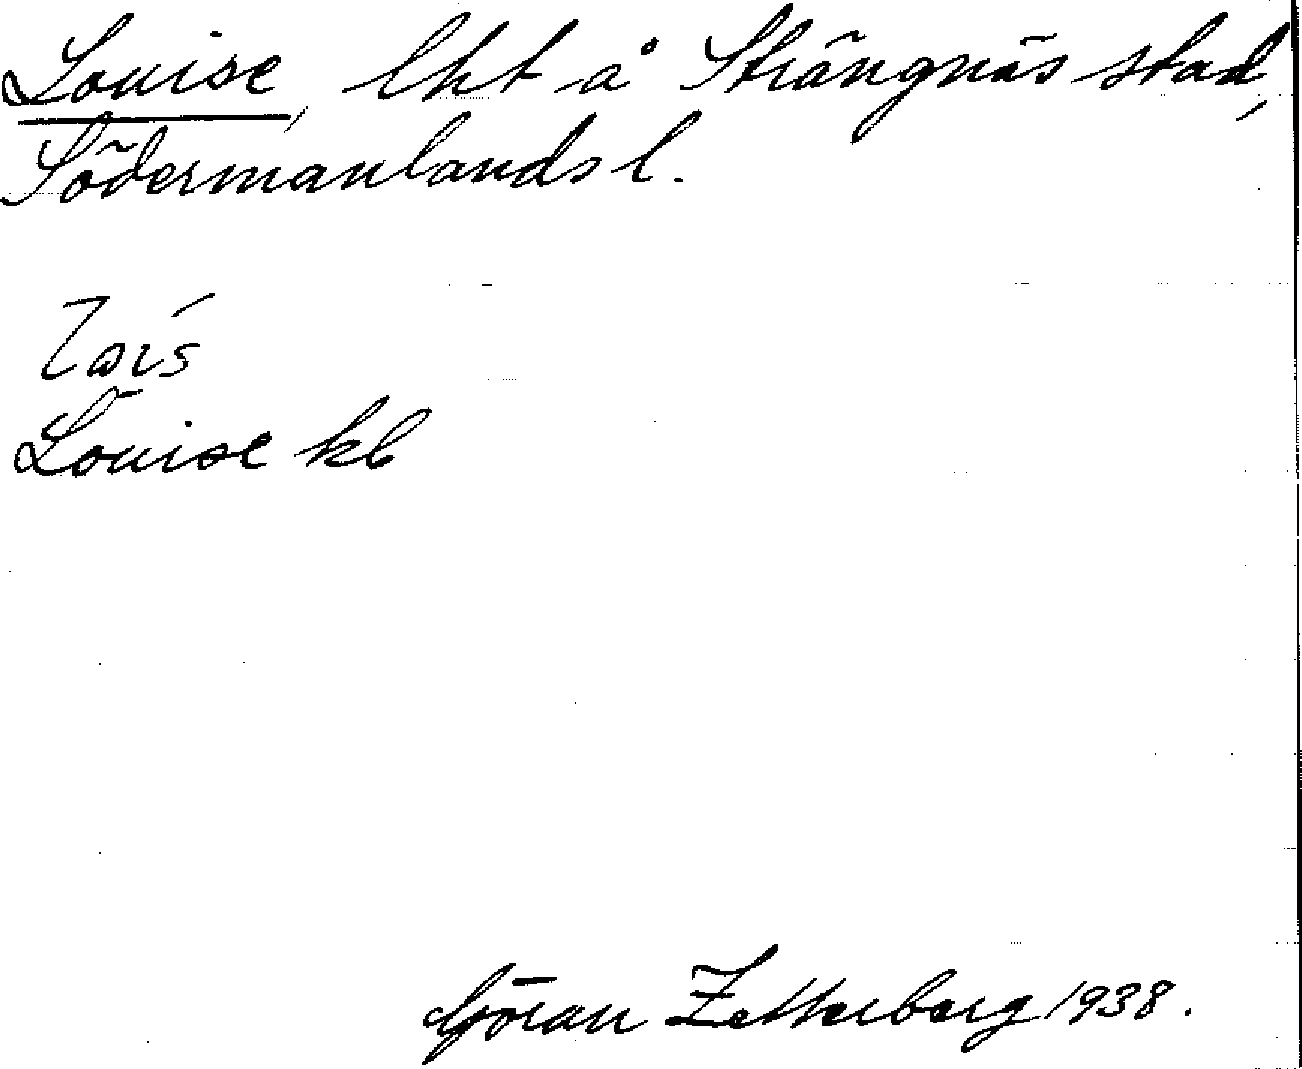 Louise, lht å Strängnäs stad,
Södermanlands l.
Louise kb
Göran Zetterberg 1938.